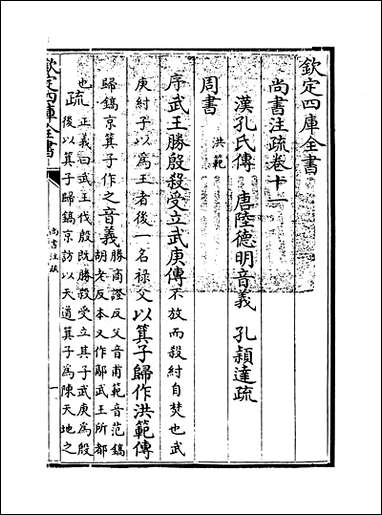 欽定四庫全書
尚書注疏卷十一
漢孔氏傳 唐陸德明音義 孔穎達疏
周書
洪範
序武王勝殷殺受立武庚傳不放而殺紂自焚也武
庚紂子以為王者後一名祿父以箕子歸作洪範傳
歸鎬京箕子作之音義勝商證反父音甫範音范鎬
胡老反本又作鄗武王所都
也疏正義曰武王伐殷既勝殺受立其子武庚為殷
後以箕子歸鎬京訪以天道箕子為陳天地之
欽定四庫全書
尚書注疏
一